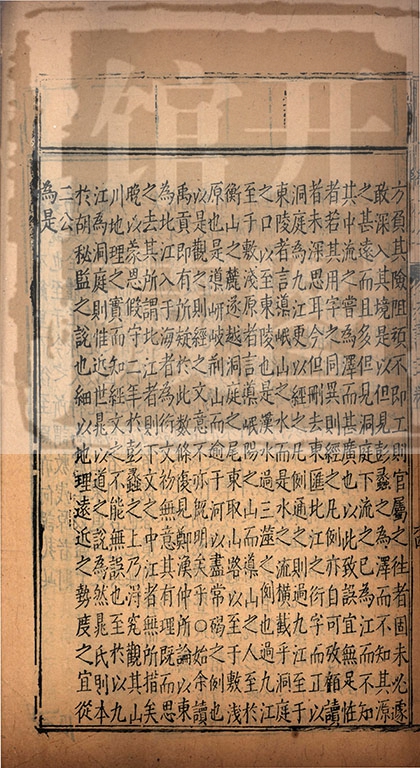 方負其險阻頑不即工則官屬之往者固未必遽
敢深入其境是以但見彭蠡之為澤而不知其源
之甚遠而且多但見洞庭下流之已為江而不知
其中流之嘗為澤而甚廣也以此致誤宜無足怪
者若其用字之同異則經之凡例亦自可攷顧讀
者未深思耳今但刪去東匯北江之衍字而正以
洞庭為九江更以經之凡例通之則過九江至于
東陵者言導岷山之水而是水之流橫截乎洞庭
之口以至東陵也是漢水過三澨之例也過九江
至于敷淺原者言導岷陽之山而導山之人至于
衡山之麓遂越洞庭之尾東取山路以至于敷淺
原也是導岍岐荊山而逾于河以盡常碣之例也
以是觀之則經之文意不亦既明矣乎○始余讀
禹貢即有所疑於此數條復見鄭漁仲所論以東
為北江入于海者為衍文初無意其有理而思
之去其所謂北江者則下文之中江者無所指矣
晚以蒙恩假守二年於彭蠡之上乃得究觀其山
川地理之實而知經文之不能無誤也至於以九
江為洞庭則惟近世晁以道之說為然晁氏則本
於胡秘監之說也細以地理遠近之勢度之宜從
二公為是